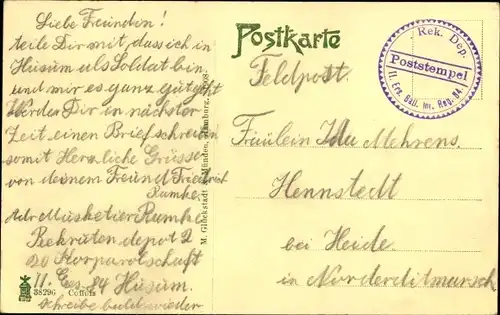 Liebe Freundin!
teile Dir mit, dass ich in
Husum als Soldat bin
und mir es ganz gut geht
Werde Dir in nächster
Zeit einen Brief schreiben
somit Herzliche Grüsse
von deinem Freund Friedrich
Rumke
Adr Musketier Rumke
Rekruten depot 2
20 Korporolschaft
II. Ers. 84 Husum.
schreibe bald wieder
38296
M. Glückstadt & Münden, Hamburg, 1908
Postkarte
Feldpost.
Rek. Dep.
Poststempel
II. Ers. Batl. Inf. Reg. 84
Fräulein Ida Mehrens
Hennstedt
bei Heide
in Norderditmarsch